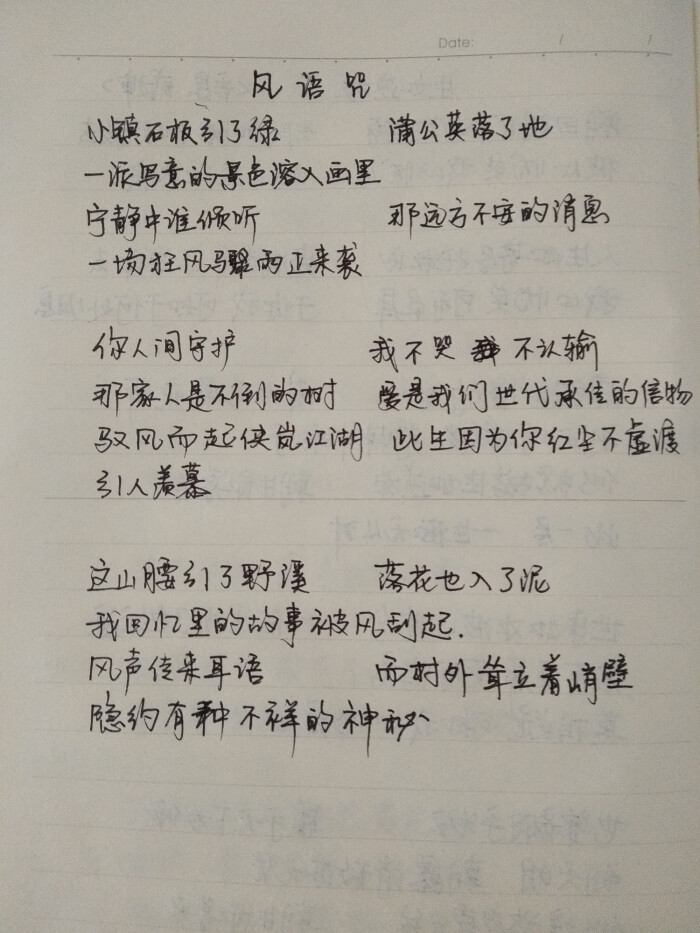 Date: / /
风语咒
小镇石板引了绿 蒲公英落了地
一派写意的景色溶入画里
宁静中谁倾听 那远方不安的消息
一场狂风骤雨正来袭
你人间守护 我不哭 不认输
那家人是不倒的树 爱是我们世代承佳的信物
驭风而起侠岚江湖 此生因为你红尘不虚渡
引人羡慕
这山腰引了野溪 落花也入了泥
我回忆里的故事被风刮起.
风声传来耳语 而村外耸立着峭壁
隐约有种不祥的神秘